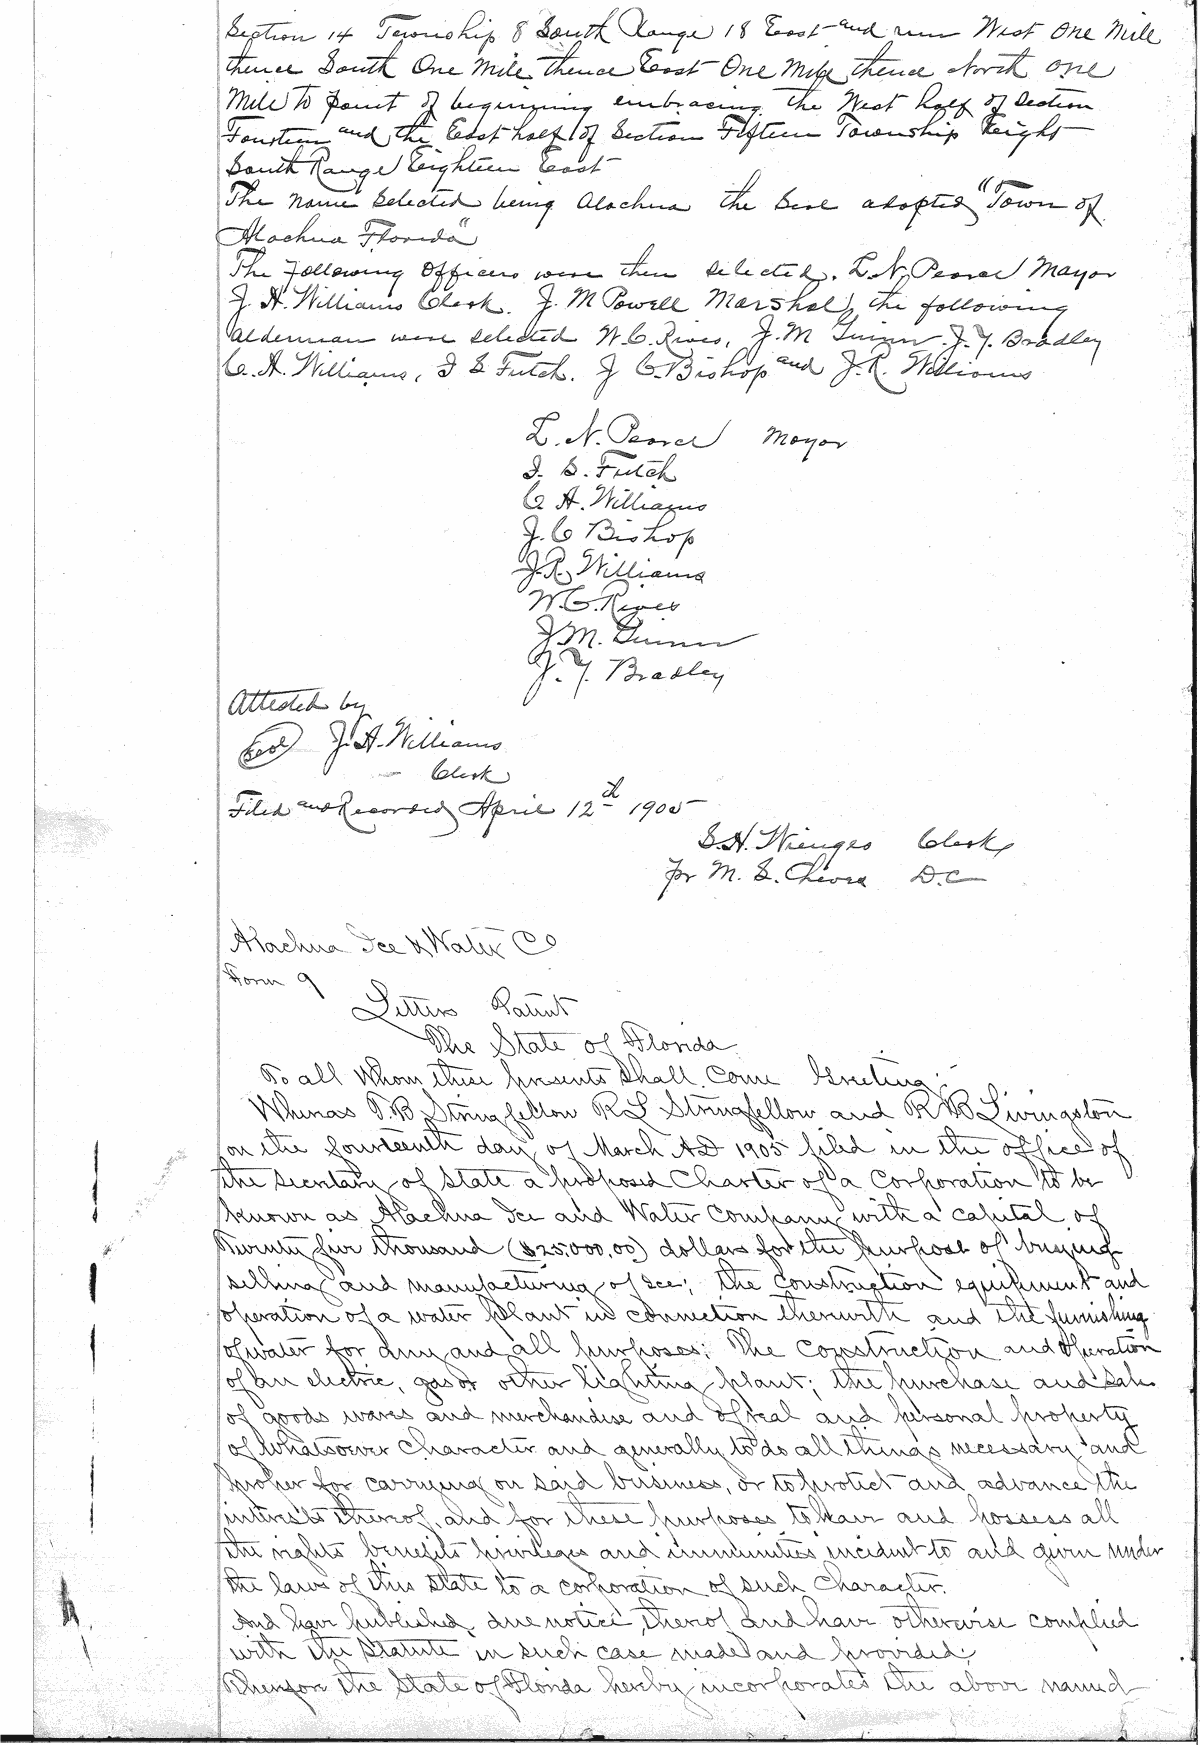 Section 14 Township 8 South Range 18 East and run West One Mile
thence South One Mile thence East One Mile thence North One
Mile to point of beginning embracing the West half of Section
Fourteen and the East half of Section Fifteen Township Eight
South Range Eighteen East
The name selected being Alachua the Seal adopted "Town of
Alachua Florida"
The following officers were then selected. L. N. Pearce Mayor
J. A. Williams Clerk. J. M Powell Marshal, the following
alderman were selected W. C. Rives, J. M Guinn. J. Y. Bradley
C. A. Williams, I S Futch. J C. Bishop and J. R. Williams
L. N. Pearce Mayor
I. S. Futch
C A. Williams
J. C Bishop
J. R. Williams
W. C. Rives
J. M. Guinn
J. Y. Bradley
Attested by
Seal J. A. Williams
Clerk
Filed and Recorded April 12th 1905
S. H. Wienges Clerk
pr M. S. D.C
Alachua Ice & Water Co
Form 9
Letters Patent
The State of Florida
To all Whom these presents Shall Come Greeting;
Whereas T. B. Stringfellow R L Stringfellow and R B Livingston
on the fourteenth day of March AD 1905 filed in the office of
the Secretary of State a proposed Charter of a Corporation to be
known as Alachua Ice and Water Company with a capital of
Twenty five thousand ($25,000.00) dollars for the purpose of buying
selling and manufacturing of ice; the construction equipment and
operation of a water plant in connection therewith and the furnishing
of water for any and all purposes; The construction and operation
of an electric, gas or other lighting plant; the purchase and sale
of goods wares and merchandise and of real and personal property
of whatsoever character and generally to do all things necessary and
proper for carrying on said business, or to protect and advance the
interests thereof, and for these purposes to have and possess all
the rights benefits privileges and immunities incident to and given under
the laws of this State to a corporation of such character.
And have published due notice thereof and have otherwise complied
with the Statute in such case made and provided;
Therefore the State of Florida hereby incorporates the above named